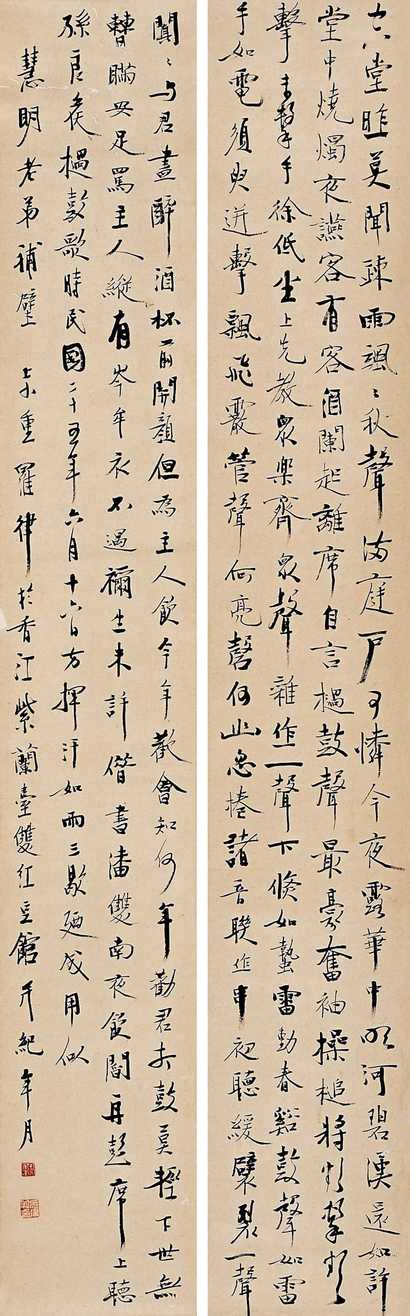 堂昨莫聞疎雨颯〻秋聲滿庭戶可憐今夜露華中明河碧漢還如許
堂中燒燭夜讌客有客酒闌起離席自言撾鼓聲最豪奮袖操槌將欲擊欲
擊未擊手徐低坐上先教眾樂齊眾聲雜作一聲下倏如蟄雷動春谿鼓聲如雷
手如電須臾迸擊飄飛霰管聲何亮磬何幽忽捲諸音聯作串初聽緩劈裂一聲
闐〻與君盡醉酒杯前開顏但為主人飲今年歡會知何年勸君打鼓莫輕下世無
曹瞞安足罵主人縱有岑牟衣不過禰生未許借書潘雙南夜飲閻再彭席上聽
孫良侯撾鼓歌時民國二十五年六月十六日方揮汗如雨三歇迺成用似
慧明老弟補壁 重羅律於香江紫蘭臺雙紅豆館并紀年月